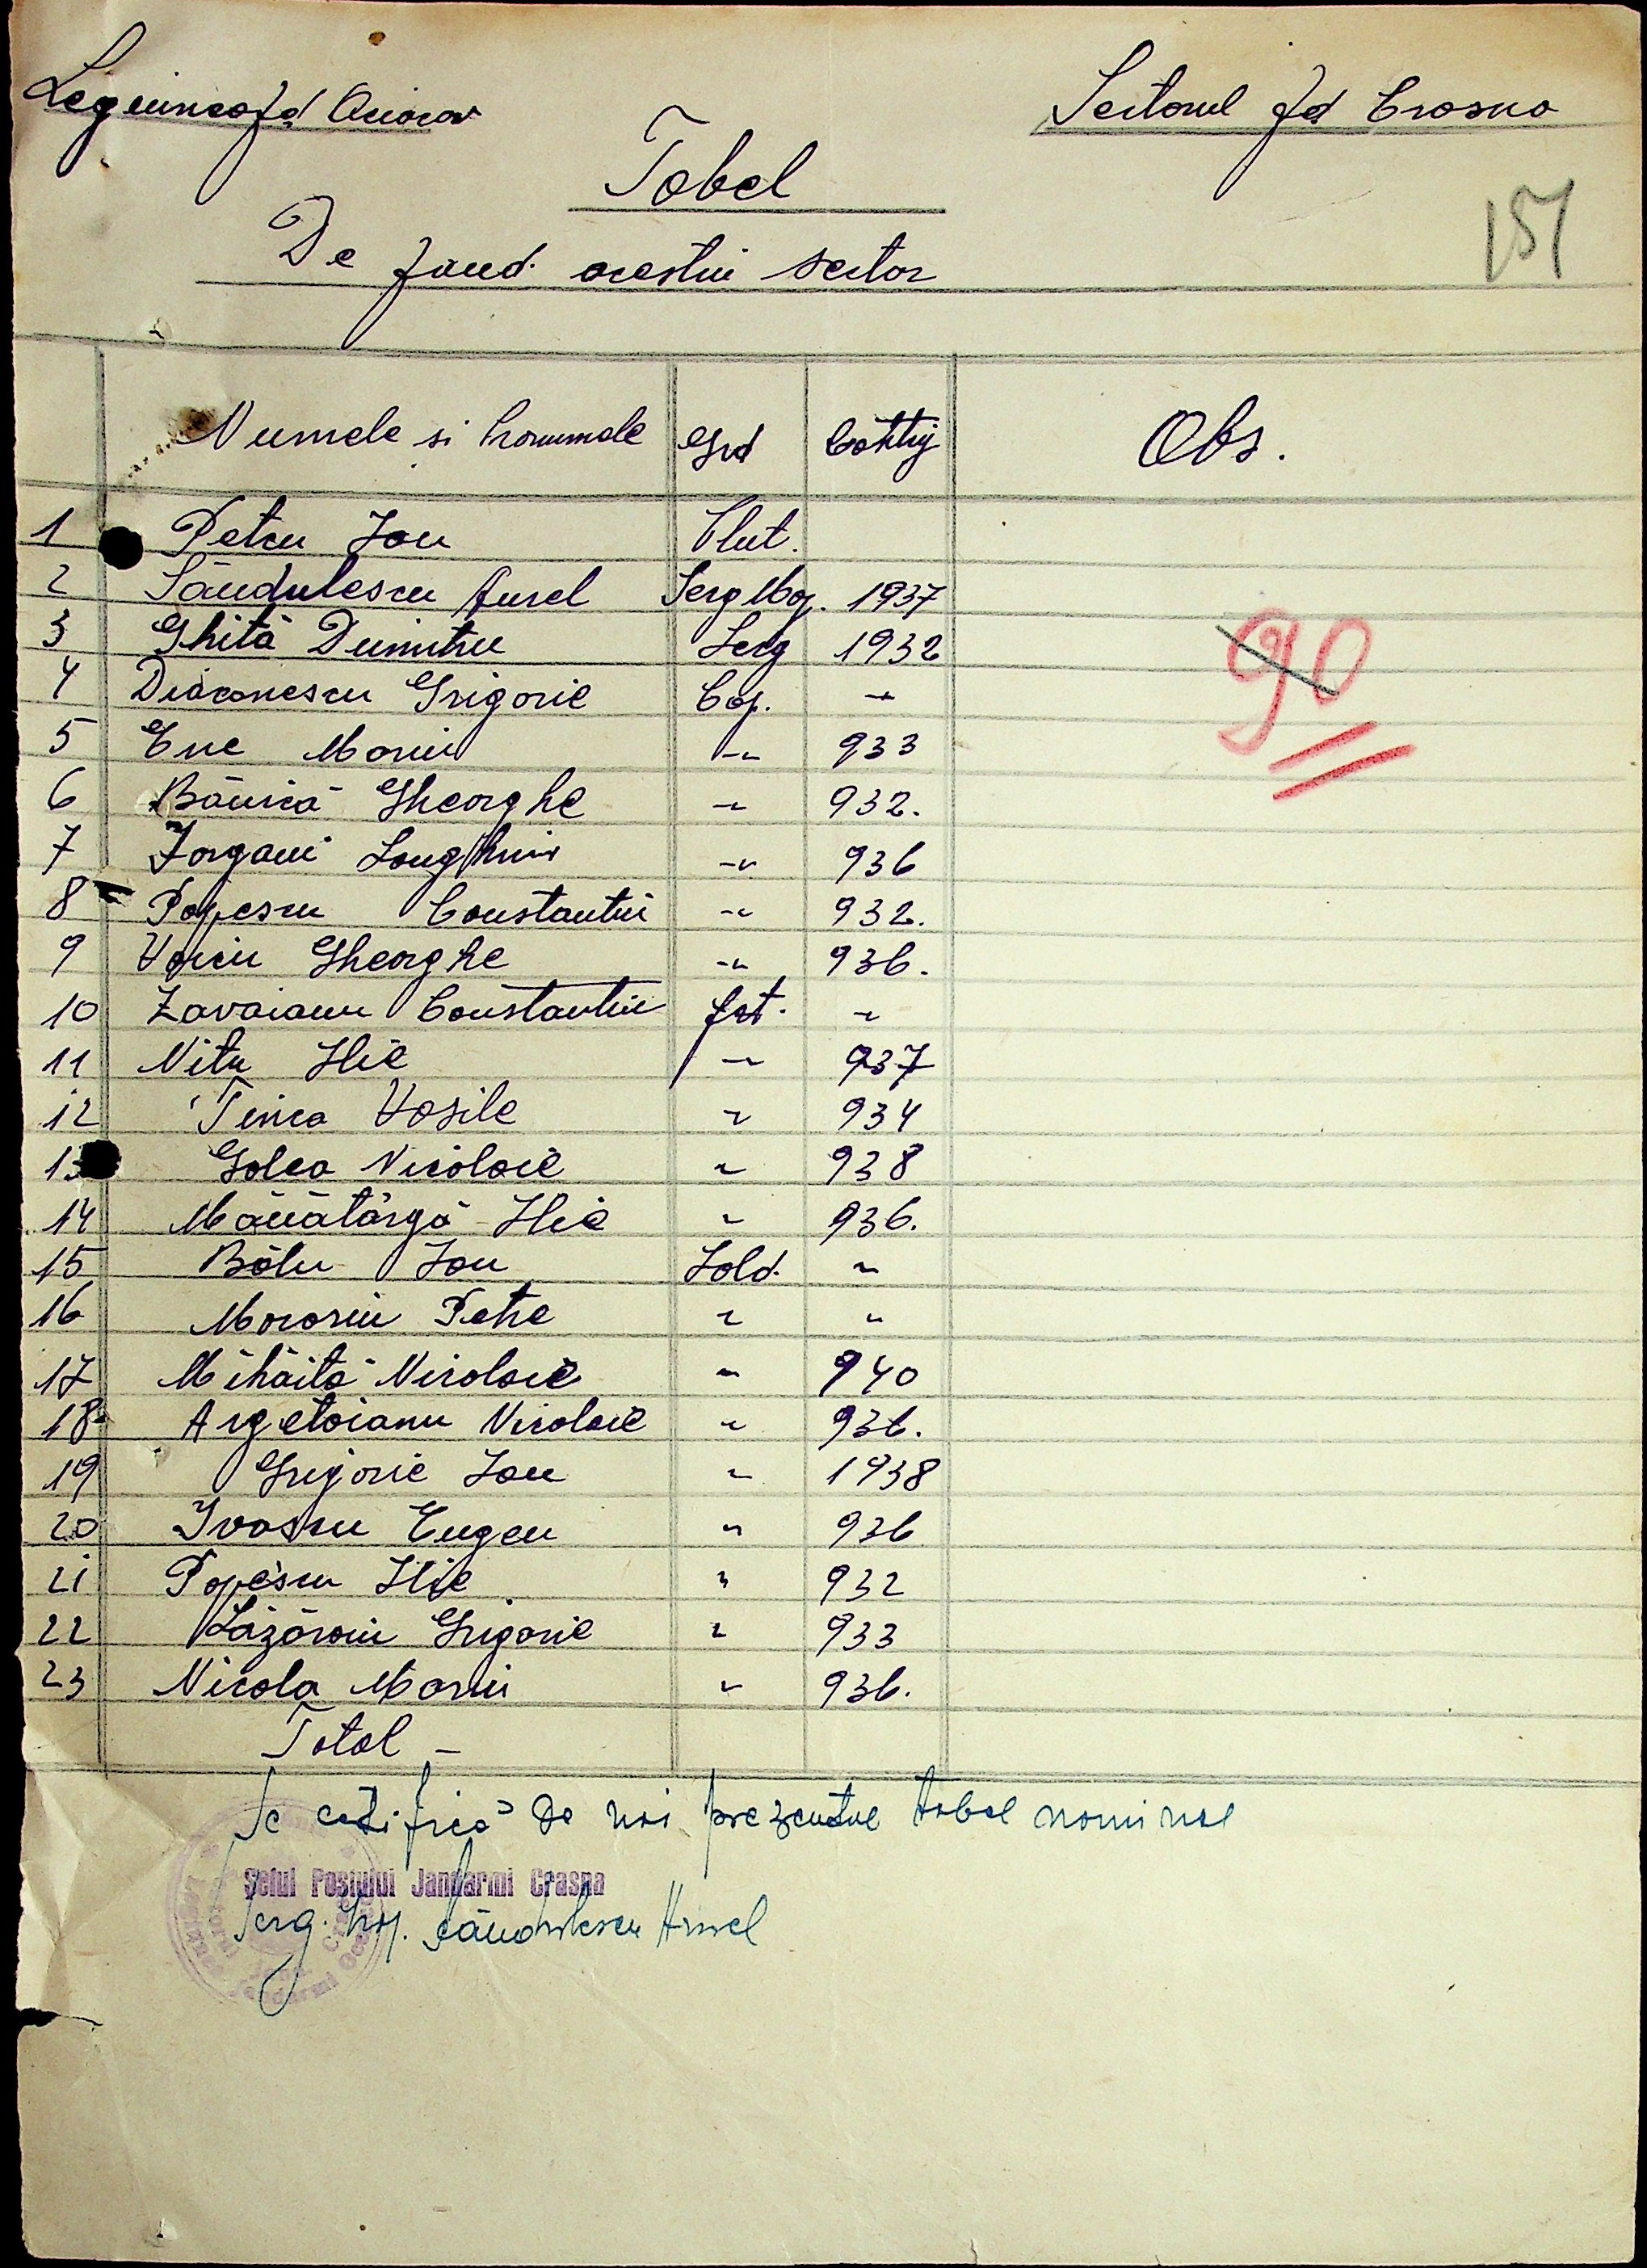 Legiunea Jd Ociacov
Sectorul Jd Crasna
Tabel
De jand. acestui sector
151
Numele si Pronumele Grd Cöttig Obs.
1 Petcu Ion Plut.
2 Săndulescu Aurel Serg Maj. 1937
3 Ghită Dumitru Serg 1932
4 Diaconescu Grigorie Cap. -"-
5 Ene Marin -"- 933
6 Bănică Gheorghe -"- 932.
7 Iorgani Longhin -"- 936
8 Popescu Constantin -"- 932.
9 Voicu Gheorghe -"- 936.
10 Zavaianu Constantin frt. "
11 Nitu Ilie -"- 937
12 Tinca Vasile " 934
13 Golea Nicolaie " 938
14 Mănătărgă Ilie " 936.
15 Bălu Ion Sold. "
16 Morosin Petre " "
17 Mihăită Nicolaie " 940
18 Argetoianu Nicolaie " 936.
19 Grigorie Ion " 1938
20 Ivascu Eugen " 936
21 Popescu Ilie " 932
22 Lăzăroiu Grigorie " 933
23 Nicola Marin " 936.
Total -
90
Se certifică de noi prezentul tabel nominal
Seful Postului Jandarmi Crasna
Serg. Maj. Săndulescu Aurel